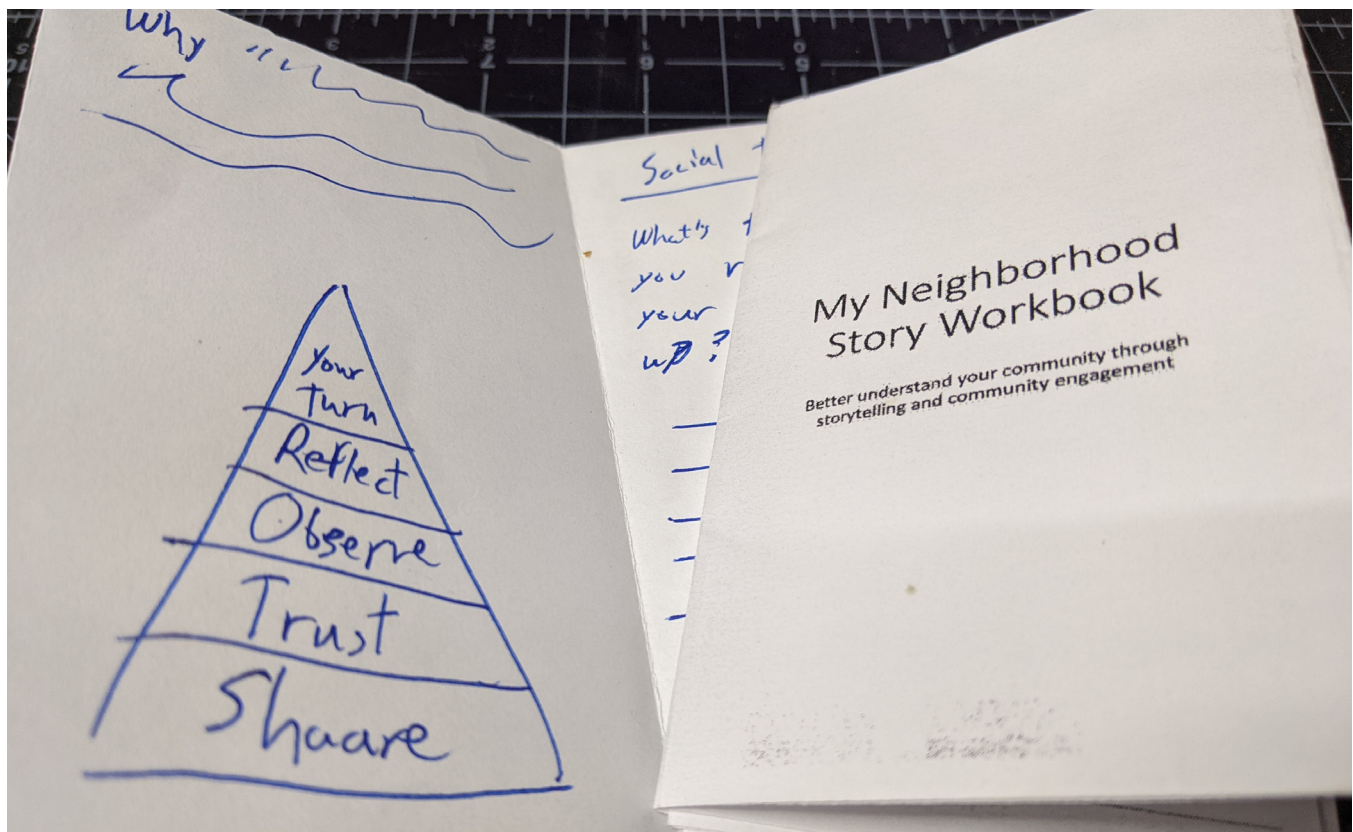 Why
your
Turn
Reflect
Observe
Trust
Shaare
Social
What's
you
your
up?
My Neighborhood
Story Workbook
Better understand your community through
storytelling and community engagement
3
2
1
0
7
6
5